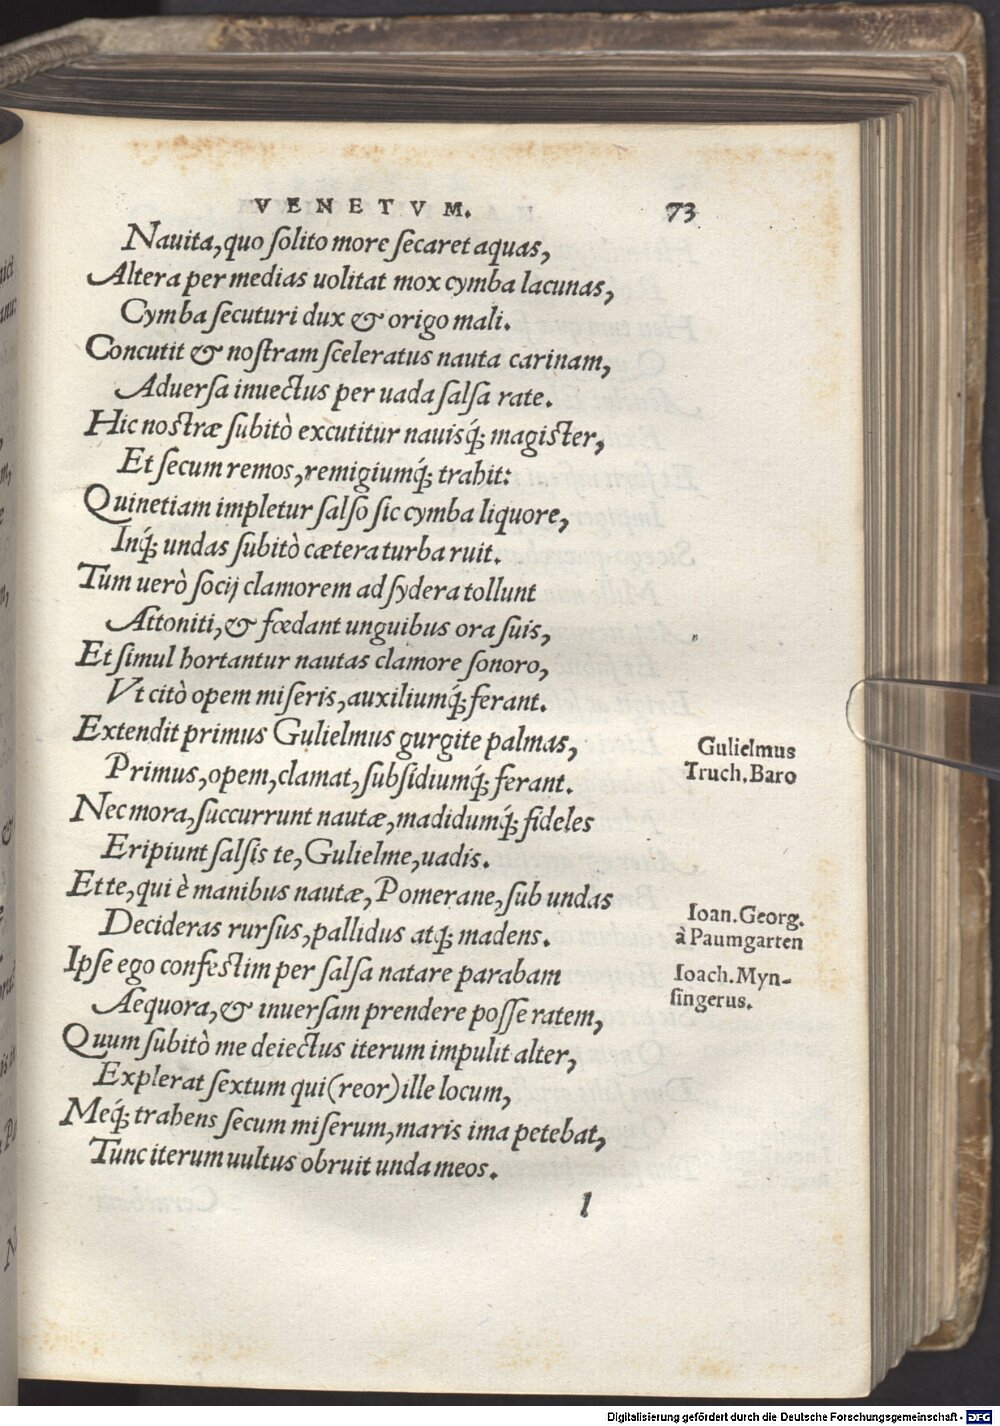 VENETVM. 73
Nauita, quo solito more secaret aquas,
Altera per medias uolitat mox cymba lacunas,
Cymba secuturi dux & origo mali.
Concutit & nostram sceleratus nauta carinam,
Aduersa inuectus per uada salsa rate.
Hic nostræ subitò excutitur nauisq́; magister,
Et secum remos, remigiumq́; trahit:
Quinetiam impletur salso sic cymba liquore,
Inq́; undas subitò cætera turba ruit.
Tum uerò socij clamorem ad sydera tollunt
Attoniti, & fœdant unguibus ora suis,
Et simul hortantur nautas clamore sonoro,
Vt citò opem miseris, auxiliumq́; ferant.
Extendit primus Gulielmus gurgite palmas,
Gulielmus
Truch. Baro
Primus, opem, clamat, subsidiumq́; ferant.
Nec mora, succurrunt nautæ, madidumq́; fideles
Eripiunt salsis te, Gulielme, uadis.
Et te, qui è manibus nautæ, Pomerane, sub undas
Ioan. Georg.
à Paumgarten
Decideras rursus, pallidus atq́; madens.
Ipse ego confestim per salsa natare parabam
Ioach. Myn-
singerus.
Aequora, & inuersam prendere posse ratem,
Quum subitò me deiectus iterum impulit alter,
Explerat sextum qui (reor) ille locum,
Meq́; trahens secum miserum, maris ima petebat,
Tunc iterum uultus obruit unda meos.
l
Digitalisierung gefördert durch die Deutsche Forschungsgemeinschaft - DFG